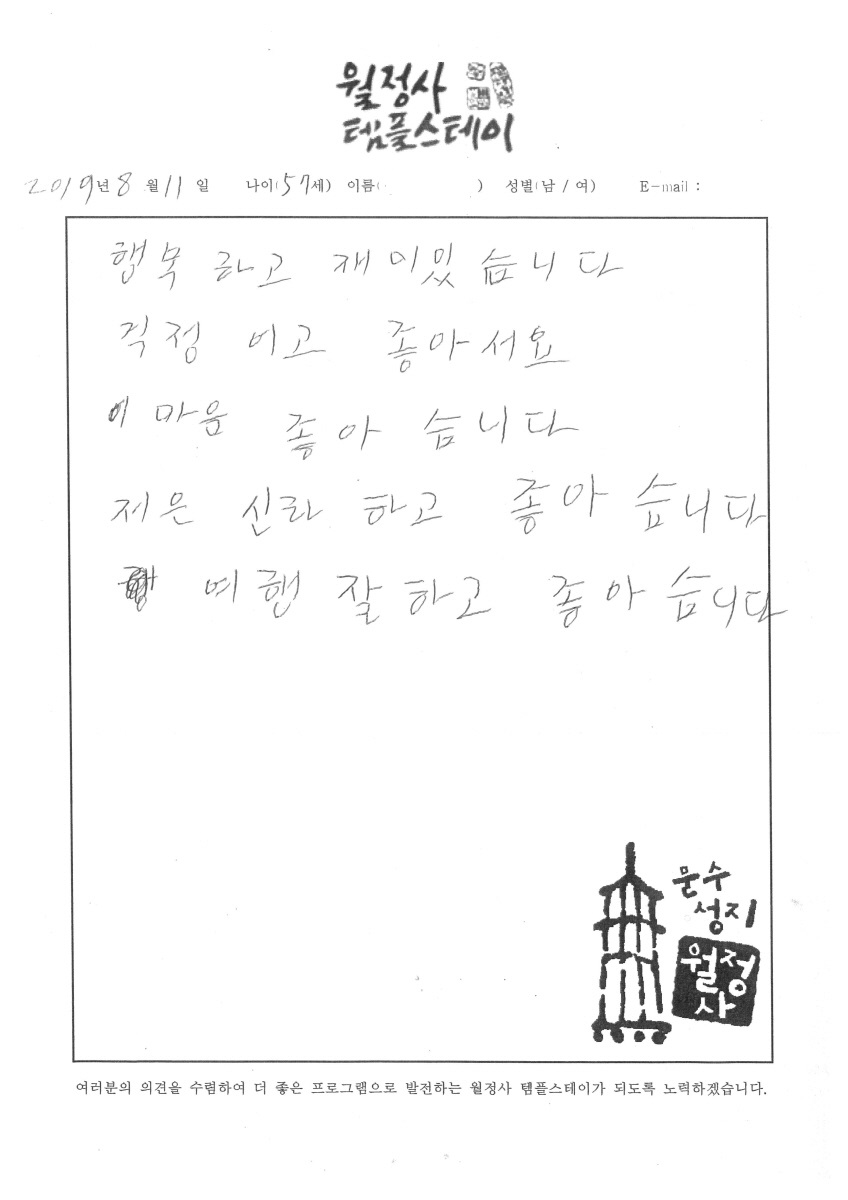 월정사
템플스테이
2019년 8월 11일 나이(57세) 이름( ) 성별(남 / 여) E-mail :
행복 하고 재미있 습니다
걱정 버고 좋아서요
이 마음 좋아 습니다
저은 신라 하고 좋아 습니다
여행 잘 하고 좋아 습니다
문수
성지
월정
사
여러분의 의견을 수렴하여 더 좋은 프로그램으로 발전하는 월정사 템플스테이가 되도록 노력하겠습니다.